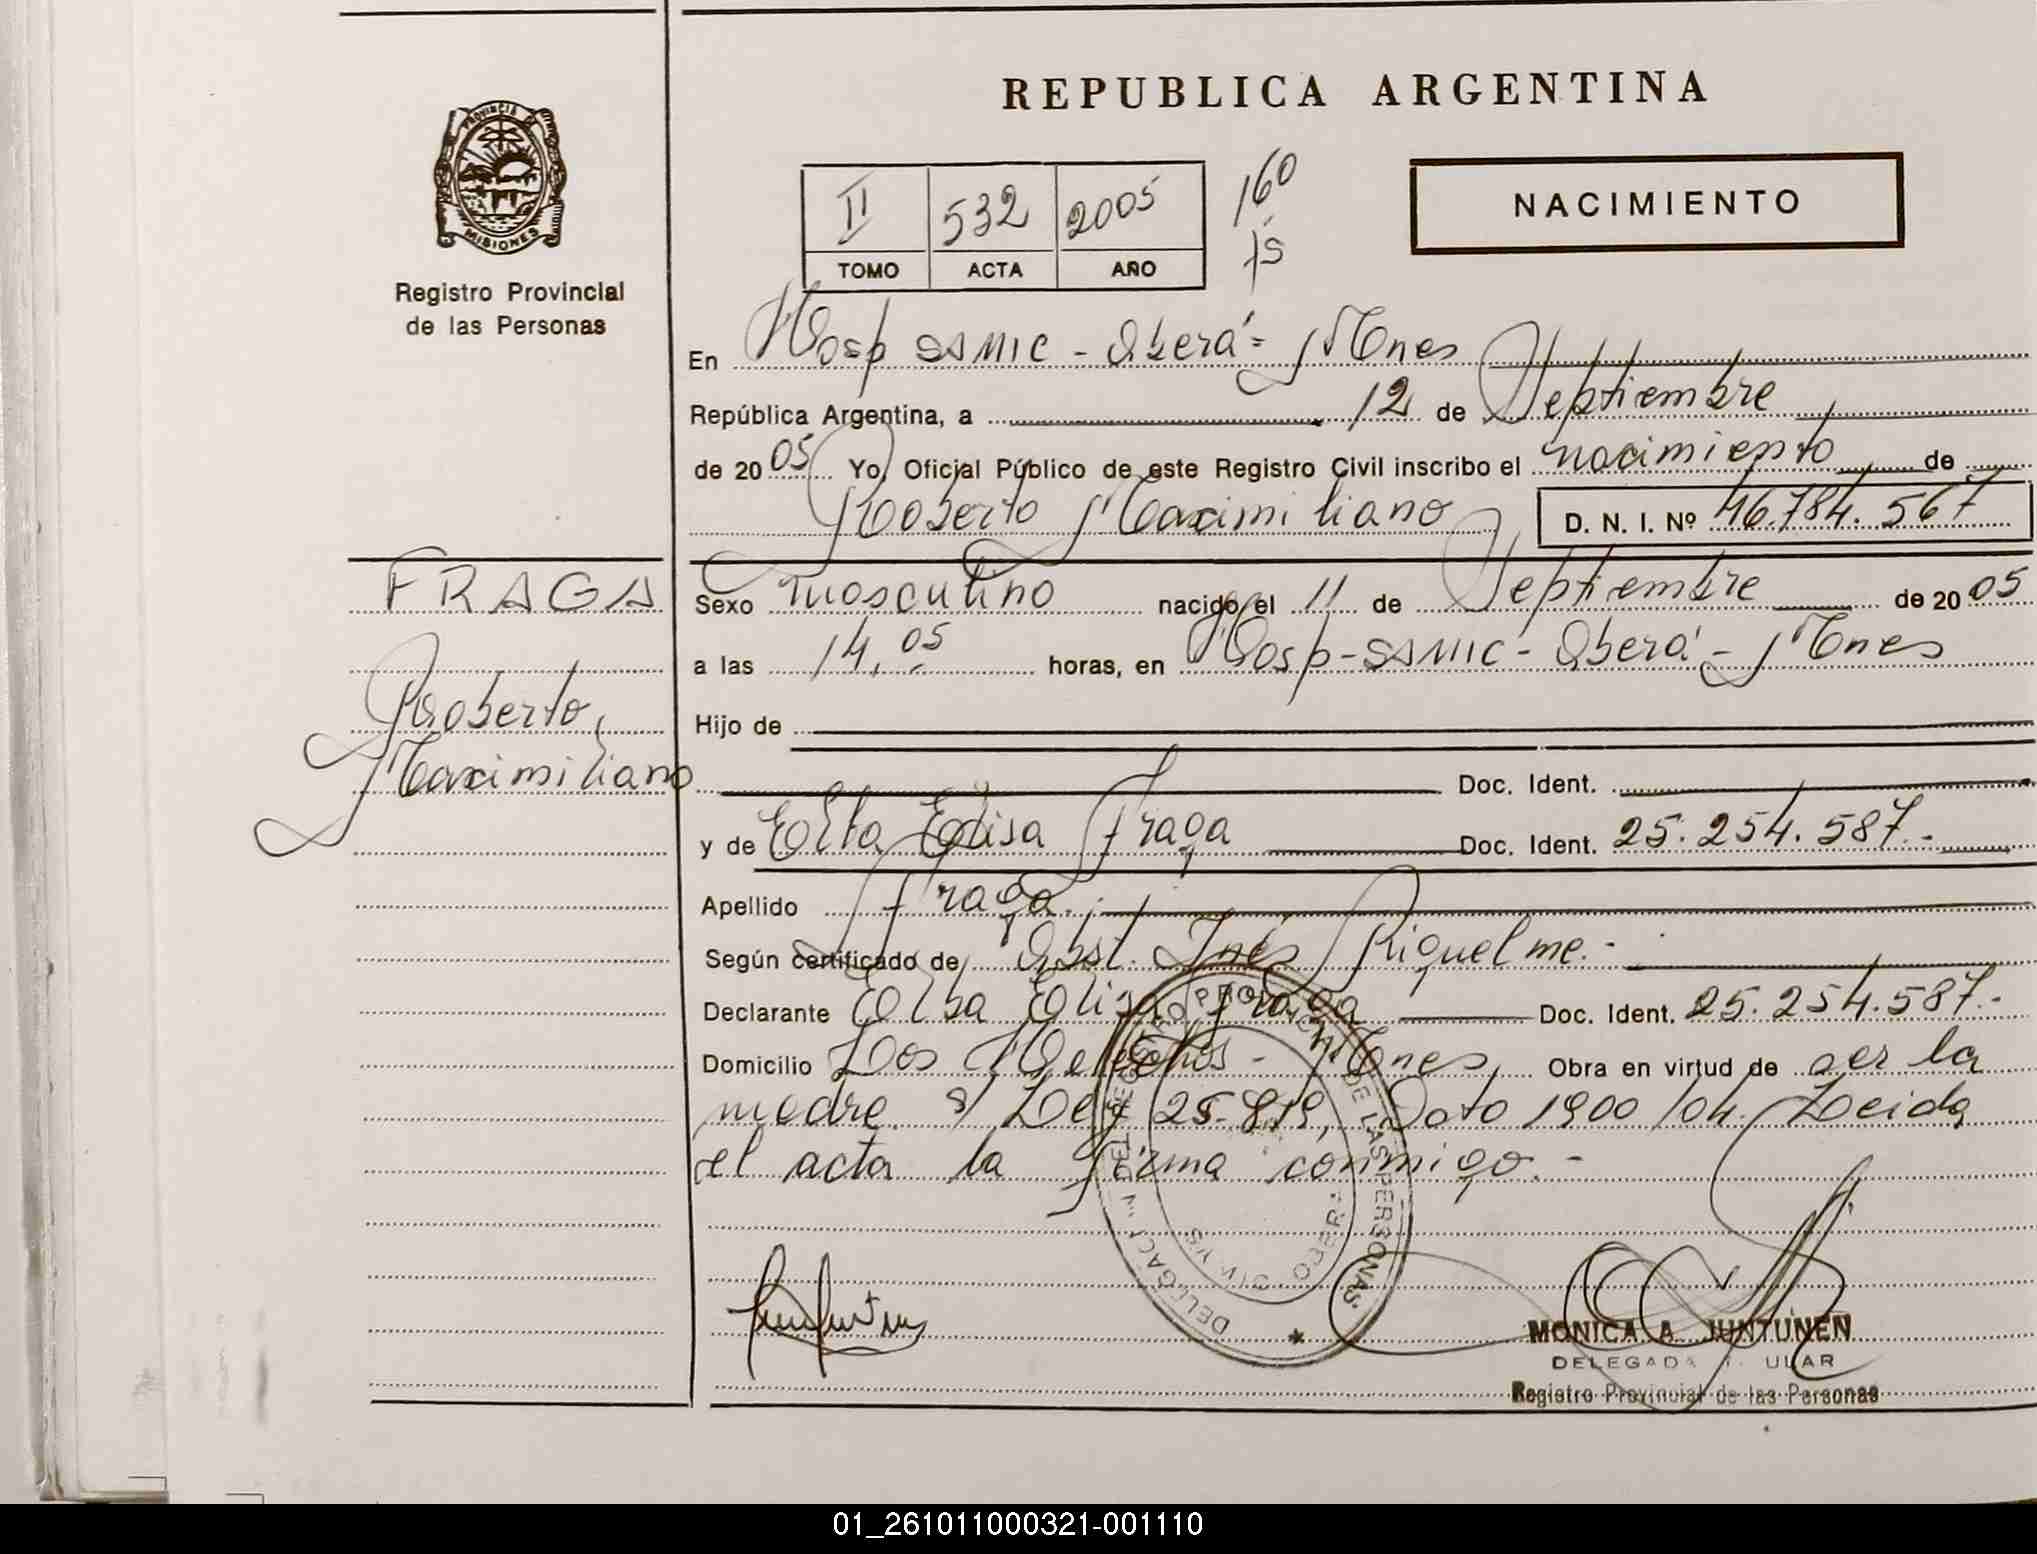 REPUBLICA ARGENTINA
PROVINCIA DE
MISIONES
Registro Provincial
de las Personas
II 532 2005
TOMO ACTA AÑO
160
15
NACIMIENTO
En Hosp SAMIC - Oberá - Mnes
República Argentina, a 12 de Septiembre
de 2005 Yo, Oficial Público de este Registro Civil inscribo el nacimiento de
Roberto Maximiliano D. N. I. Nº 46.784.567
FRAGA
Roberto
Maximiliano
Sexo masculino nacido el 11 de Septiembre de 2005
a las 14,05 horas, en Hosp-SAMIC - Oberá - Mnes
Hijo de
Doc. Ident.
y de Elba Elisa Fraga Doc. Ident. 25.254.587.-
Apellido Fraga.
Según certificado de Obst. Inés Riquelme.-
Declarante Elba Elisa Fraga Doc. Ident. 25.254.587.-
Domicilio Dos Helechos - Mnes, Obra en virtud de ser la
madre s/ Ley 25.819, Dato 1900/04. Leida
el acta la firma conmigo.-
DE LAS PERSONAS
MONICA A. JUNTUNEN
DELEGADA
Registro Provincial de las Personas
01_261011000321-001110